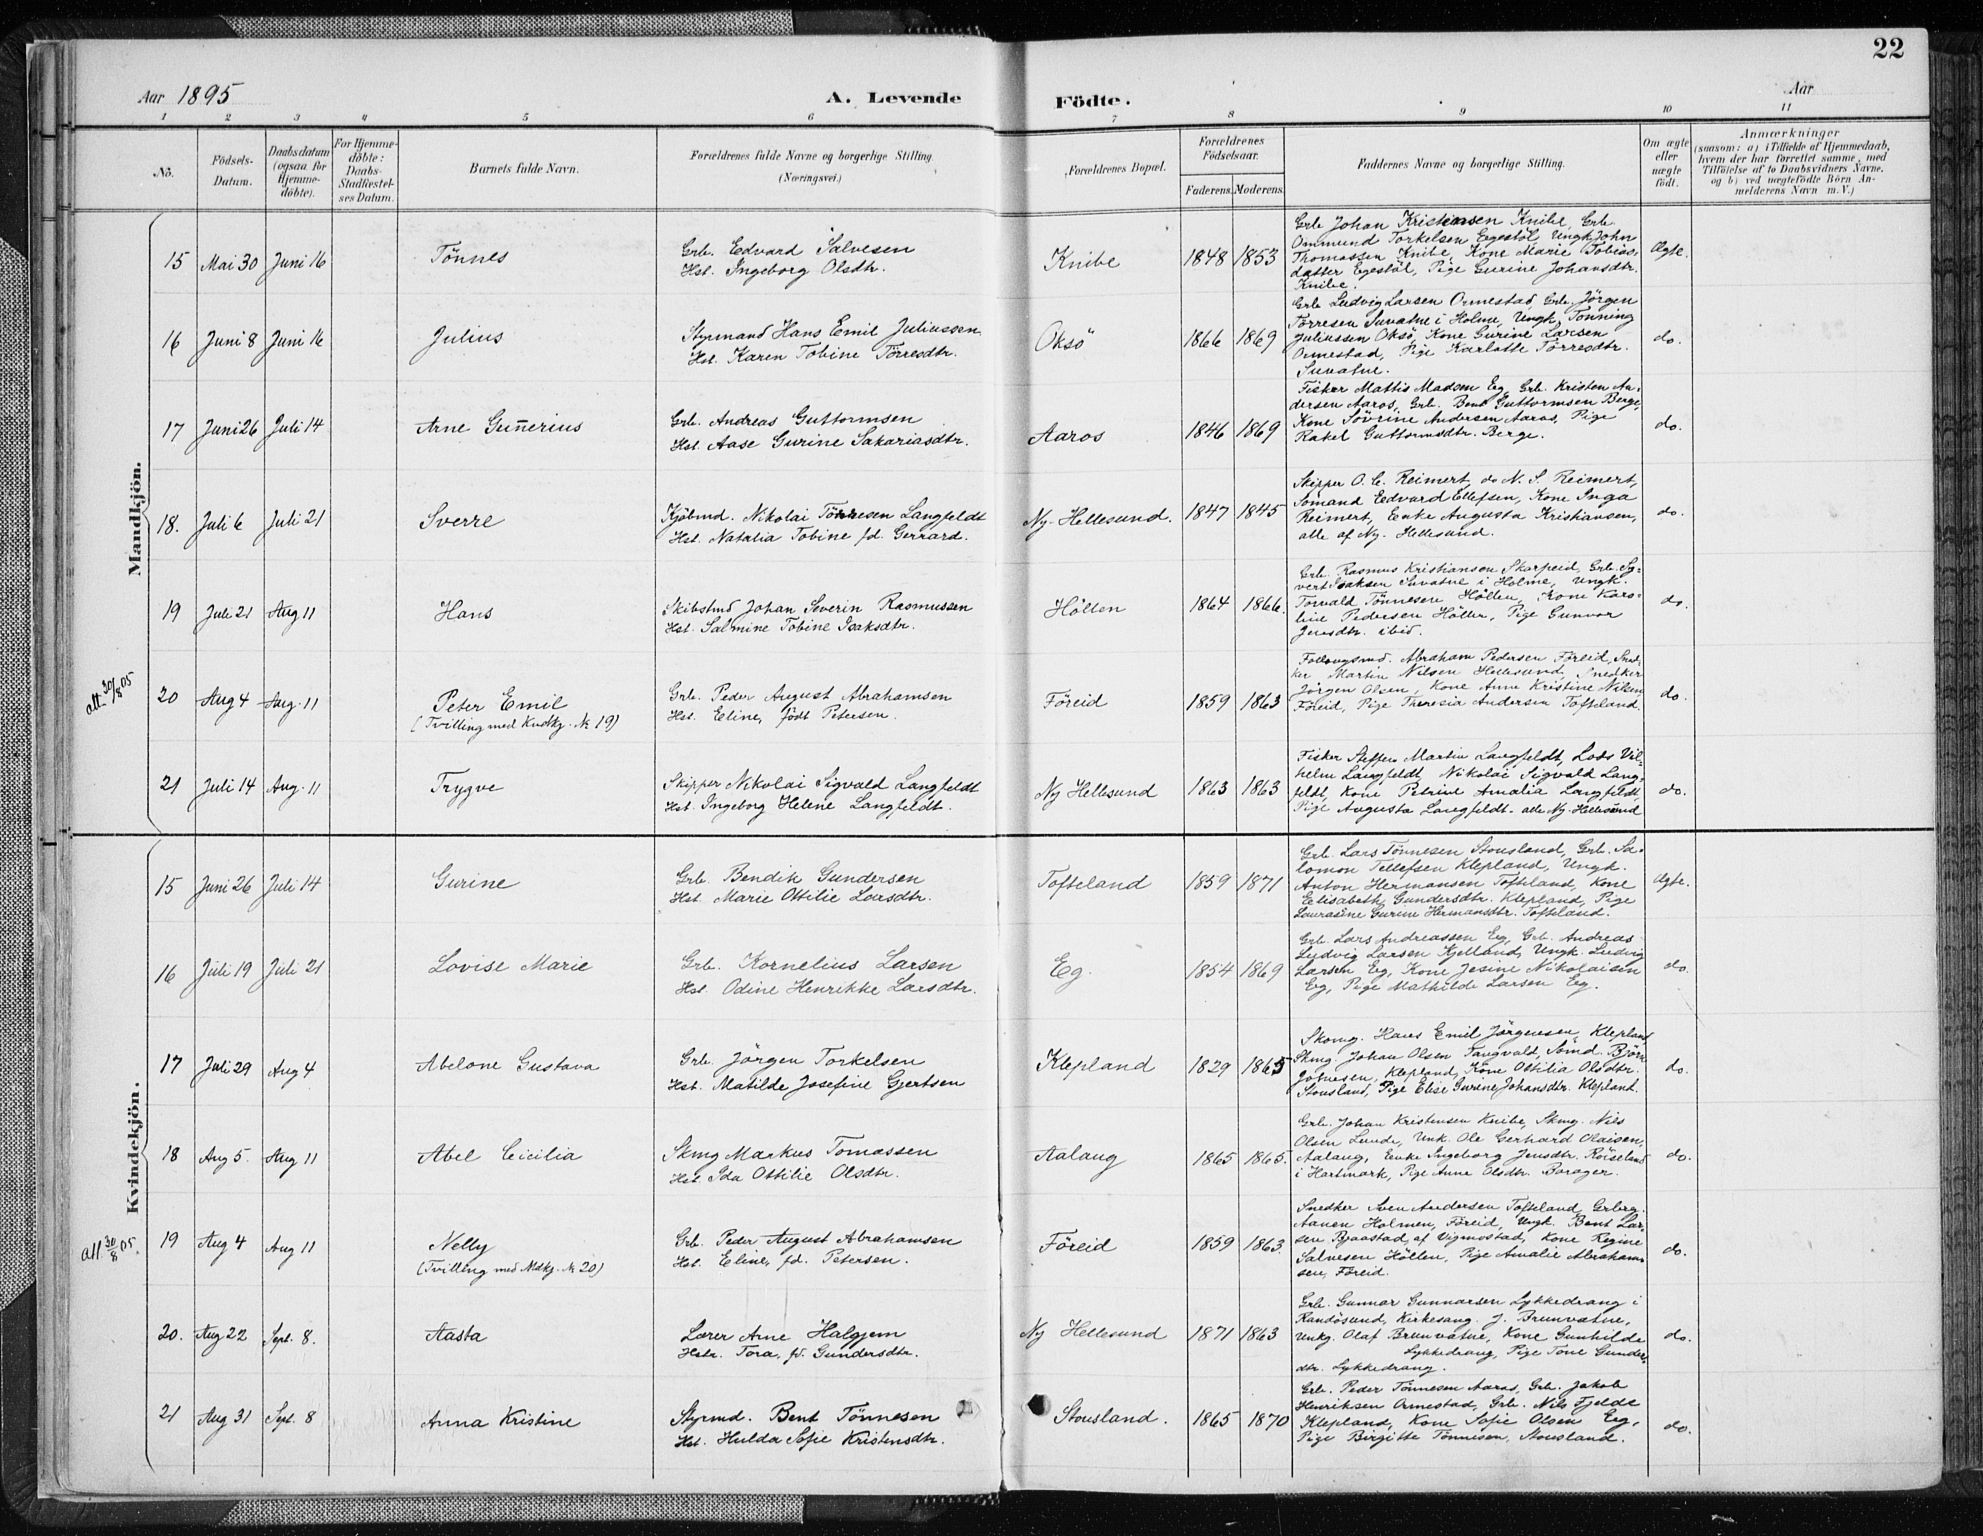 22
Aar 1895
A. Levende Födte.
Aar
1 2 3 4 5 6 7 8 9 10 11
No.
Födsels-Datum.
Daabsdatum (ogsaa for Hjemme-döbte).
For Hjemme-döbte: Daabs-Stadfæstel-ses Datum.
Barnets fulde Navn.
Forældrenes fulde Navne og borgerlige Stilling. (Næringsvei.)
Forældrenes Bopæl.
Forældrenes Födselsaar.
Faderens. Moderens.
Faddernes Navne og borgerlige Stilling.
Om ægte eller uægte födt.
Anmærkninger
(saasom: a) i Tilfælde af Hjemmedaab, hvem der har forrettet samme, med Tilföielse af to Daabsvidners Navne. og b) ved uægtefödte Börn An-melderens Navn m. V.)
Mandkjön.
15 Mai 30 Juni 16 Tönnes
Grb. Edvard Salvesen
Hst. Ingeborg Olsdtr.
Knibe 1848 1853
Grb. Johan Kristensen Knibe, Grb.
Ommund Torkelsen Egestöl, Ungk. John
Thomassen Knibe, Kone Marie Tobias-
datter Egestöl, Pige Gurine Johansdtr.
Knibe.
Ægte.
16 Juni 8 Juni 16 Julius
Styrmand Hans Emil Juliussen
Hst. Karen Tobine Törresdtr.
Oksö 1866 1869
Grb. Ludvig Larsen Ormestad, Grb. Jörgen
Törresen Suvatne i Holme, Ungk. Tönning
Juliussen Oksö, Kone Gurine Larsen
Ormestad, Pige Karlotte Törresdtr.
Suvatne.
do.
17 Juni 26 Juli 14 Arne Gunerius
Grb. Andreas Guttormsen
Hst. Aase Gurine Sakariasdtr.
Aaros 1846 1869
Fisker Mattis Madsen Eg, Grb. Kristen An-
dersen Aaros, Grb. Bent Guttormsen Berge,
Kone Sövrine Andersen Aaros, Pige
Rakel Guttormsdtr. Berge.
do.
18. Juli 6 Juli 21 Sverre
Kjöbmd. Nikolai Tönnesen Langfeldt
Hst. Natalia Tobine fd. Gerrard.
Ny-Hellesund. 1847 1845
Skipper O. C. Reimert, do N. S. Reimert,
Sömand Edvard Ellefsen, Kone Inga
Reimert, Enke Augusta Kristiansen,
alle af Ny-Hellesund.
do.
19 Juli 21 Aug 11 Hans
Skibstmd Johan Severin Rasmussen
Hst. Salmine Tobine Isaksdtr.
Höllen 1864 1866.
Grb. Rasmus Kristiansen Skarpeid, Grb. Sy-
vert Isaksen Suvatne i Holme, Ungk.
Torvald Tönnesen Höllen, Kone Kars-
tine Pedersen Höllen, Pige Gunvor
Jensdtr. ibid.
do.
att. 30/8 05
20 Aug 4 Aug. 11 Peter Emil
(Tvilling med Kvdkj. № 19)
Grb. Peder August Abrahamsen
Hst. Eline, födt Petersen.
Föreid 1859 1863
Abraham Pedersen Föreid, Sned-
ker Martin Nilsen Hellesund, Snedker
Jörgen Olsen, Kone Anne Kristine Nilsen
Föreid, Pige Theresia Andersen Tofteland.
do.
21 Juli 14 Aug. 11 Trygve
Skipper Nikolai Sigvald Langfeldt
Hst. Ingeborg Helene Langfeldt.
Ny Hellesund 1863 1863
Fisker Steffen Martin Langfeldt, Lods Vil-
helm Langfeldt, Nikolai Sigvald Lang-
feldt, Kone Petrine Amalia Langfeldt,
Pige Augusta Langfeldt - alle Ny-Hellesund
do.
Kvindekjön.
15 Juni 26 Juli 14 Gurine
Grb. Bendik Gundersen
Hst. Marie Ottilie Larsdtr.
Tofteland 1859 1871
Grb. Lars Tönnesen Stousland, Grb. Sa-
lomon Tellefsen Klepland, Ungk.
Anton Hermansen Tofteland, Kone
Elisabeth Gundersdtr. Klepland, Pige
Laurasine Gurine Hermansdtr. Tofteland.
Ægte.
16 Juli 19 Juli 21 Lovise Marie
Grb. Kornelius Larsen
Hst. Odine Henrikke Larsdtr.
Eg. 1854 1869
Grb. Lars Andreassen Eg, Grb. Andreas
Ludvig Larsen Kjelland, Ungk. Ludvig
Larsen Eg, Kone Jesine Nikolaisen
Eg, Pige Mathilde Larsen Eg.
do.
17 Juli 29 Aug 4 Abelone Gustava
Grb. Jörgen Torkelsen
Hst. Matilde Josefine Gjertsen
Klepland 1829 1865
Skomg. Hans Emil Jörgensen, Klepland
Skmg. Johan Olsen Tangvald, Sömd. Björn
Johnsen, Klepland, Kone Ottilia Olsdtr.
Stousland, Pige Elise Gurine Johansdtr. Klepland.
do.
18 Aug 5. Aug 11 Abel Cicilia
Skmg Markus Tomassen
Hst. Ida Ottilie Olsdtr.
Aalaug 1865 1865.
Grb. Johan Kristensen Knibe, Skmg. Nils
Olsen Lunde, Unk. Ole Gerhard Olaisen,
Aalaug, Enke Ingeborg Jensdtr. Röiseland
i Hartmark, Pige Anne Olsdtr. Borager.
do.
att 30/8 05.
19 Aug 4 Aug 11 Nelly
(Tvilling med Mdkj. № 20)
Grb. Peder August Abrahamsen
Hst. Eline, fd. Petersen.
Föreid 1859 1863.
Snedker Sven Andersen Tofteland, Grbrg.
Aanen Holmen, Föreid, Ungk. Bent Lar-
sen Bjaastad, af Vigmostad, Kone Regine
Salvesen Höllen, Pige Amalie Abraham-
sen, Föreid.
do.
20. Aug 22 Sept. 8. Aasta
Lærer Arne Halgjem
Hstr. Tora, fd. Gundersdtr.
Ny Hellesund 1871 1863
Grb. Gunnar Gunnarsen Lykkedrang i
Randösund, Kirkesang. J. Brunvatne,
Unkg. Olaf Brunvatne, Kone Gunhilde
Lykkedrang, Pige Tone Gunder-
dtr. Lykkedrang.
do.
21 Aug 31 Sept. 8 Anna Kristine
Styrmd. Bent Tönnesen
Hst. Hulda Sofie Kristensdtr.
Stousland. 1865 1870
Grb. Peder Tönnesen Aaros, Grb. Jakob
Henriksen Ormestad, Grb. Nils Fjelde
Klepland, Kone Sofie Olsen Eg,
Pige Birgitte Tönnesen, Stousland.
do.